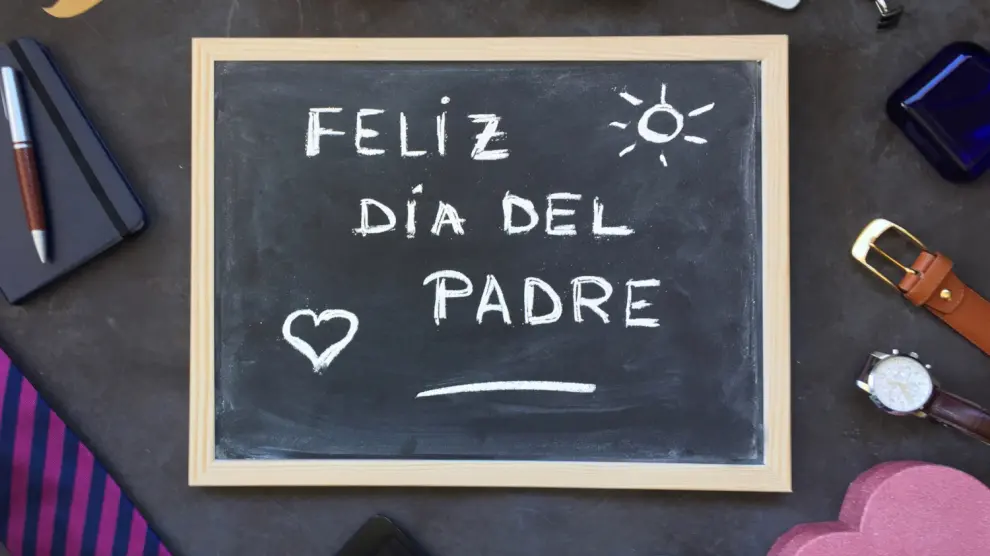 FELIZ
DÍA DEL
PADRE